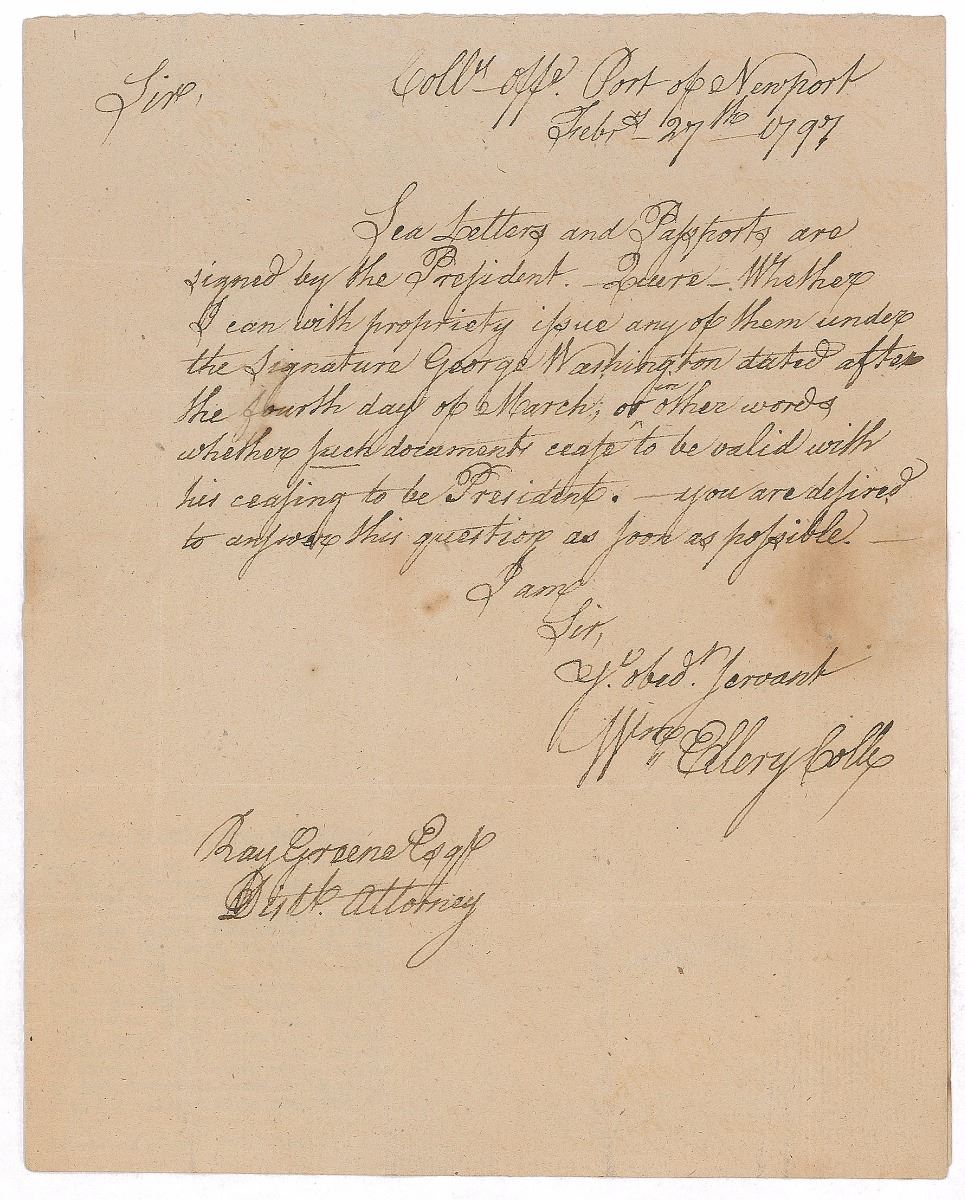 Sir,
Collrs offe. Port of Newport
Febry 27th 1797
Sea Letters and Passports are
signed by the President. - Quere - Whether
I can with propriety issue any of them under
the signature George Washington dated after
the fourth day of March; or in other words
whether such documents cease to be valid with
his ceasing to be President. - you are desired
to answer this question as soon as possible. -
I am
Sir,
Yr. obedt. servant
Wm Ellery Collr
Ray Greene Esqr
Distt. Attorney